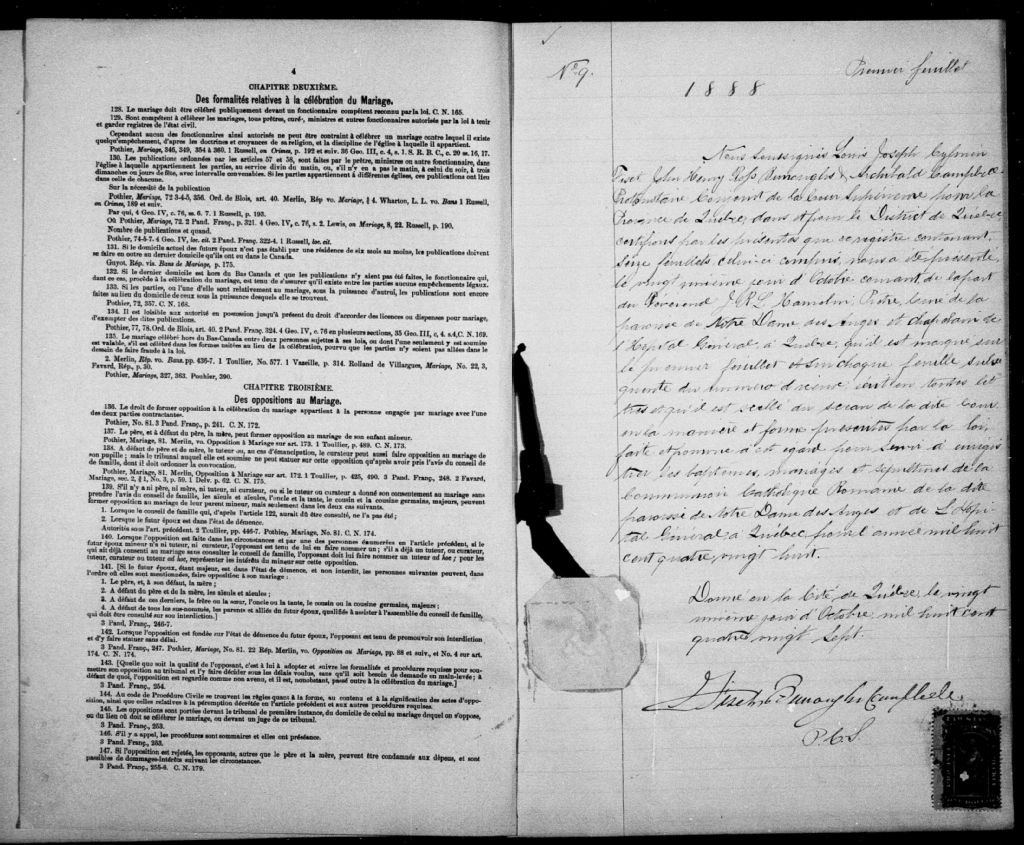 4
CHAPITRE DEUXIÈME.
Des formalités relatives à la célébration du Mariage.
128. Le mariage doit être célébré publiquement devant un fonctionnaire compétent reconnu par la loi. C. N. 165.
129. Sont compétent à célébrer les mariages, tous prêtres, curés, ministres et autres fonctionnaires autorisés par la loi à tenir
et garder registres de l'état civil.
Cependant aucun des fonctionnaires ainsi autorisés ne peut être contraint à célébrer un mariage contre lequel il existe
quelqu'empêchement, d'après les doctrines et croyances de sa religion, et la discipline de l'église à laquelle il appartient.
Pothier, Mariage, 346, 349, 354 à 360. 1 Russell, on Crimes, p. 192 et suiv. 36 Geo. III, c. 4, s. 1. S. R. B. C., c. 20 ss. 16, 17.
130. Les publications ordonnées par les articles 57 et 58, sont faites par le prêtre, ministre ou autre fonctionnaire, dans
l'église à laquelle appartiennent les parties, au service divin du matin, ou, s'il n'y en a pas le matin, à celui du soir, à trois
dimanches ou jours de fête, avec intervalle convenables. Si les parties appartiennent à différentes églises, ces publications ont lieu
dans celle de chacune.
Sur la nécessité de la publication
Pothier, Mariage, 72 3-4-5, 356. Ord. de Blois, art. 40. Merlin, Rép vo. Mariage, § 4. Wharton, L. L. vo. Bans 1 Russell,
on Crimes, 189 et suiv.
Par qui, 4 Geo. IV, c. 76, ss. 6. 7. 1 Russell, p. 193.
Où Pothier, Mariage, 72. 2 Pand. Franç., p. 321. 4 Geo. IV, c. 76, s. 2. Lewis, on Mariage, 8, 22. Russell, p. 190.
Nombre de publications et quand.
Pothier, 74-5-7. 4 Geo. IV, loc. cit. 2 Pand. Franç. 322-4. 1 Russell, loc. cit.
131. Si le domicile actuel des futurs époux n'est pas établi par une résidence de six mois au moins, les publications doivent
se faire en outre au dernier domicile qu'ils ont eu dans le Canada.
Guyot, Rép. vis. Bans de Mariage, p. 175.
132. Si le dernier domicile est hors du Bas Canada et que les publications n'y aient pas été faites, le fonctionnaire qui,
dans ce cas, procède à la célébration du mariage, est tenu de s'assurer qu'il existe entre les parties aucuns empêchements légaux.
133. Si les parties, ou l'une d'elle sont relativement au mariage, sous la puissance d'autrui, les publications sont encore
faites au lieu du domicile de ceux sous la puissance desquels elle se trouvent.
Pothier, 72, 357. C. N. 168.
134. Il est loisible aux autorité en possession jusqu'à présent du droit d'accorder des licences ou dispenses pour mariage,
d'exempter des dites publications.
Pothier, 77, 78. Ord. de Blois, art. 40. 2 Pand. Franç. 324. 4 Geo. IV, c. 76 en plusieurs sections, 35 Geo. III, c. 4, s. 4. C. N. 169.
135. Le mariage célébré hors du Bas-Canada entre deux personnes sujettes à ses lois, ou dont l'une seulement y est soumise
est valable, s'il est célébré dans les formes usitées au lieu de la célébration, pourvu que les parties n'y soient pas allées dans le
dessein de faire fraude à la loi.
2. Merlin, Rép. vo. Bans, pp. 436-7. 1 Toullier, No. 577. 1 Vazeille, p. 314. Rolland de Villargues, Mariage, No. 22, 3,
Favard, Rép., p. 30.
Pothier, Mariage, 327, 363. Pouhier, 390.
CHAPITRE TROISIÈME.
Des oppositions au Mariage.
136. Le droit de former opposition à la célébration du mariage appartient à la personne engagée par mariage avec l'une
des deux parties contractantes.
Pothier, No. 81. 3 Pand. Franç., p. 241. C. N. 172.
137. Le père, et à défaut du père, la mère, peut former opposition au mariage de son enfant mineur.
Pothier, Mariage, 81. Merlin, vo. Opposition à Mariage sur art. 173. 1 Toullier, p. 489. C. N. 173.
138. A défaut de père et de mère, le tuteur ou, au cas d'émancipation, le curateur peut aussi faire opposition au mariage de
son pupille; mais le tribunal auquel elle est soumise ne peut statuer sur cette opposition qu'après avoir pris l'avis du conseil
de famille, dont il doit ordonner la convocation.
Pothier, Mariage, 81. Merlin, Opposition à Mariage sur art. 172. 1 Toullier, p. 425, 490. 3 Pand. Franç., 248. 2 Favard,
Mariage, sec. 2, § 1, No. 3, p. 59. 1 Delv. p. 62. C. N. 175.
139. S'il n'y a ni père, ni mère, ni tuteur, ni curateur, ou si le tuteur ou curateur a donné son consentement au mariage sans
prendre l'avis du conseil de famille, les aïeuls et aïeules, l'oncle et la tante, le cousin et la cousine germains, majeurs, peuvent
former opposition au mariage de leur parent mineur, mais seulement dans les deux cas suivants.
1. Lorsque le conseil de famille qui, d'après l'article 122, aurait dû être consulté, ne l'a pas été;
2. Lorsque le futur époux est dans l'état de démence.
Autorités sous l'art. précédent. 2 Toullier, pp. 446-7. Pothier, Mariage, No. 81. C. N. 174.
140. Lorsque l'opposition est faite dans les circonstances et par une des personnes énumérées en l'article précédent, si le
futur époux mineur n'a ni tuteur, ni curateur, l'opposant est tenu de lui en faire nommer un; s'il a déjà un tuteur, ou curateur,
qui ait déjà consenti au mariage sans consulter le conseil de famille, l'opposant doit lui faire nommer un tuteur ad hoc; pour les
tuteur, curateur ou tuteur ad hoc, représenter les intérêts du mineur sur cette opposition.
141. [Si le futur époux, étant majeur, est dans l'état de démence, et non interdit, les personnes suivantes peuvent, dans
l'ordre où elles sont mentionnées, faire opposition à son mariage:
1. Le père, et, à son défaut, la mère;
2. A défaut du père et de la mère, les aïeuls et aïeules;
3. A défaut de ces derniers, le frère ou la sœur, l'oncle ou la tante, le cousin ou la cousine germains, majeurs;
4. A défaut de tous les sus-nommés, les parents et alliés du futur époux, qualifiés à assister à l'assemblée du conseil de famille,
qui doit être consulté sur sou interdiction.]
3 Pand. Franç., 246-7.
142. Lorsque l'opposition est fondée sur l'état de démence du futur époux, l'opposant est tenu de promouvoir son interdiction
et d'y faire statuer sans délai.
3 Pand. Franç., 247. Pothier, Mariage, No. 81. 22 Rép. Merlin, vo. Opposition au Mariage, pp. 88 et suiv., et No. 4 sur art.
174. C. N. 174.
143. [Quelque que soit la qualité de l'opposant, c'est à lui à adopter et suivre les formalités et procédures requises pour sou-
mettre son opposition au tribunal et l'y faire décider sous les délais voulus, sans qu'il soit besoin de demande en main-levée; à
défaut de quoi, l'opposition est regardée comme non avenu, et il est, nonobstant, passé outre à la célébration du mariage.]
3 Pand. Franç., 254.
144. Au code de Procédure Civile se trouvent les règles quant à la forme, au contenu et à la signification des actes d'oppo-
sition, ainsi que celles relatives à la péremption décrétée en l'article précédent et aux autres procédures requises.
145. Les oppositions sont portées devant le tribunal de première instance, du domicile de celui au mariage duquel on s'oppose,
ou du lieu où doit se célébrer le mariage, ou devant un juge de ce tribunal.
3 Pand. Franç., 253.
146. S'il y a appel, les procédures sont sommaires et elles ont préséance.
3 Pand. Franç., 253.
147. Si l'opposition est rejetée, les opposants, autres que le père et la mère, peuvent être condamnés aux dépens, et sont
passibles de dommages-intérêts suivant les circonstances.
3 Pand. Franç., 255-6. C. N. 179.
No. 9.
Premier feuillet
1888
Nous Soussignés Louis Joseph Cyprien
Fiset John Henry Ross Burroughs & Archibald Campbell
Protonotaire Conjoint de la Cour Supérieure pour la
Province de Québec, dans et pour le District de Québec
certifions par les présentes que ce registre contenant
seize feuillets celui-ci compris, nous a été présenté,
le vingt unième jour d'Octobre courant de la part
du Révérend J. R. L. Hamelin, Prêtre, Curé de la
paroisse de Notre Dame des Anges et chapelain de
l'Hôpital Général, à Québec, qu'il est marqué sur
le premier feuillet et sur chaque feuille subsé
quente du numéro d'icelui écrit en toutes let
tres et qu'il est scellé du sceau de la dite Cour
en la manière et forme prescrites par la loi
faite et pourvue à cet égard pour servir à enregis
trer les baptêmes, mariages et sépultures de la
Communion Catholique Romaine de la dite
paroisse de Notre Dame des Anges et de l'Hôpi
tal Général, à Québec, pour l'année mil huit
cent quatre vingt huit.
Donné en la Cité de Québec le vingt
unième jour d'Octobre mil huit cent
quatre vingt sept.
Fiset Burroughs & Campbell
P. C. S.